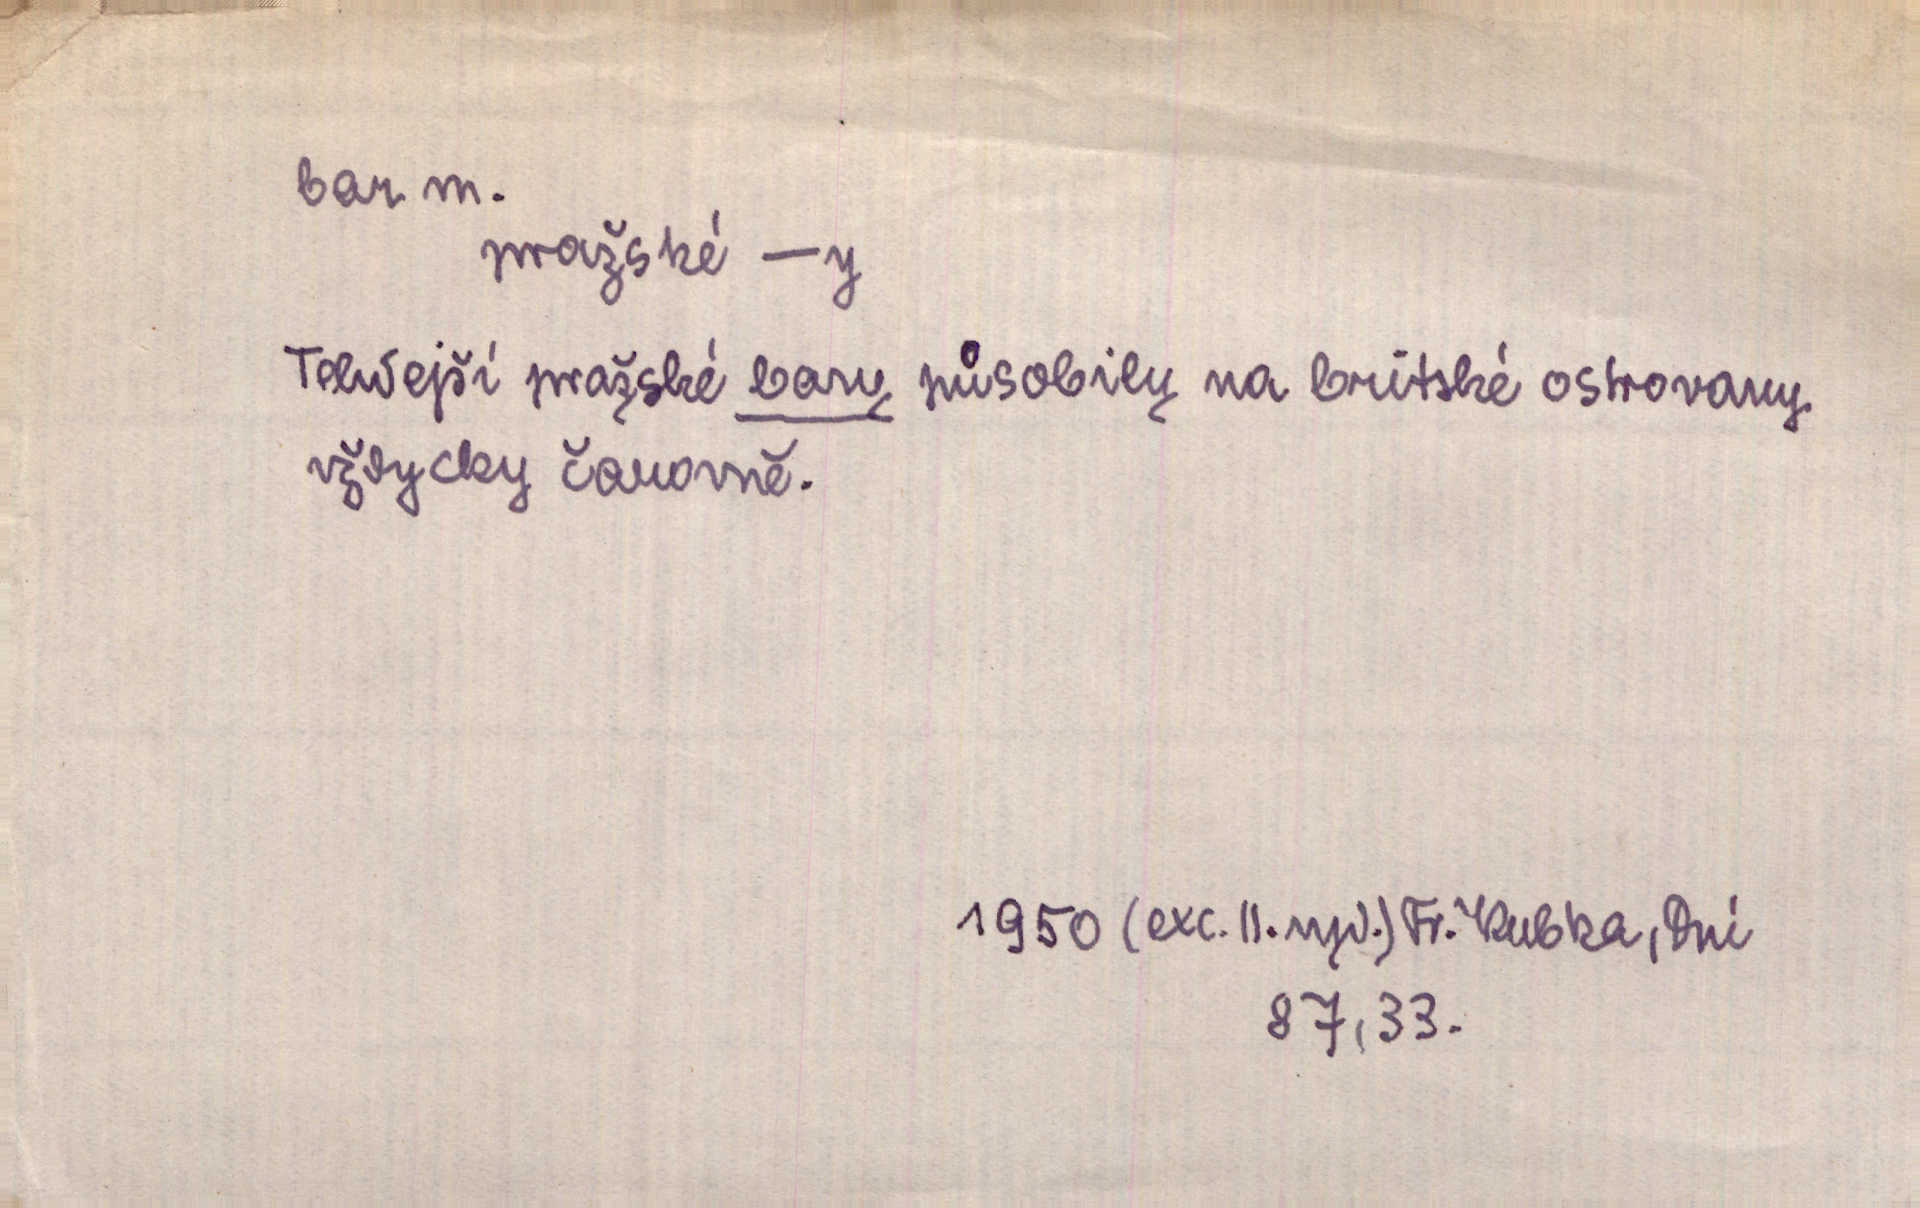 bar m.
pražské —y
Tehdejší pražské bary působily na britské ostrovany
vždycky čarovně.
1950 (exc. II. vyd.) Fr. Kubka, Dni
87,33.